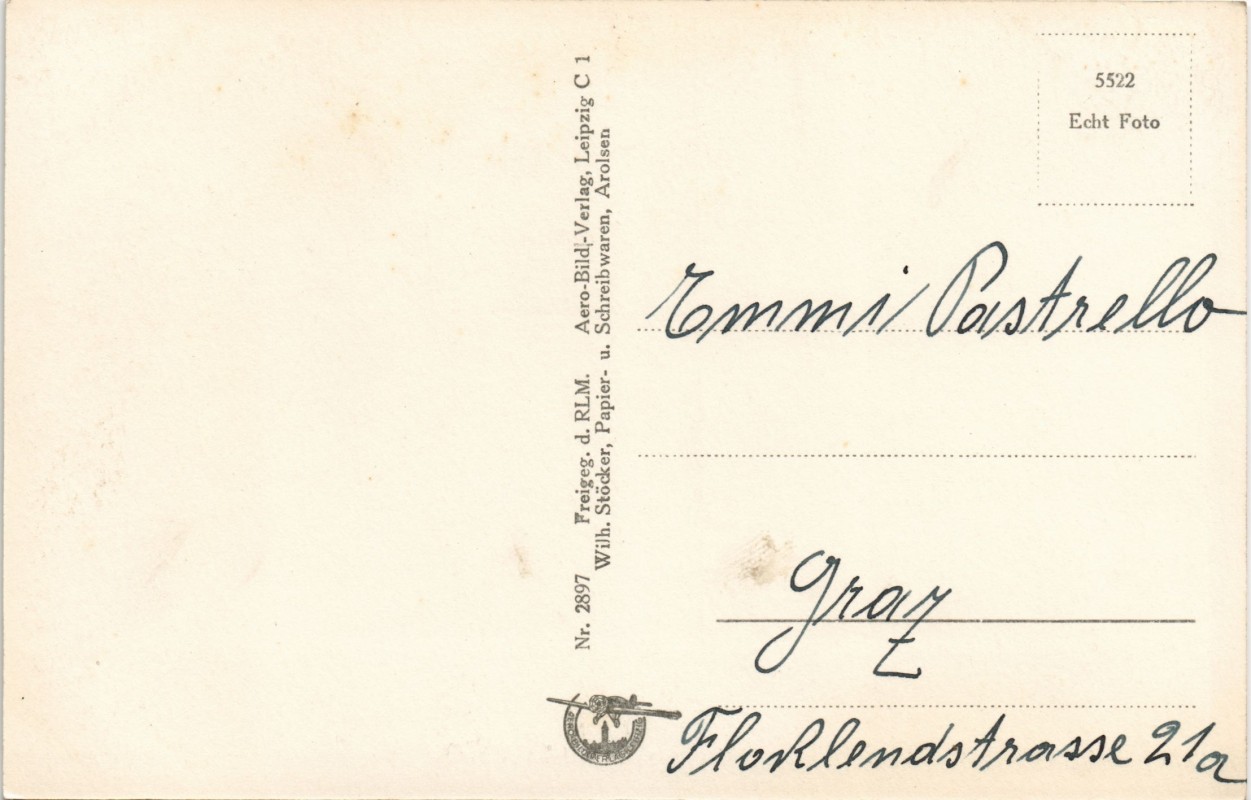 Nr. 2897 Freigeg. d. RLM. Aero-Bild-Verlag, Leipzig C 1
Wilh. Stöcker, Papier- u. Schreibwaren, Arolsen
5522
Echt Foto
Emmi Pastrello
Graz
Floklendstrasse 21a